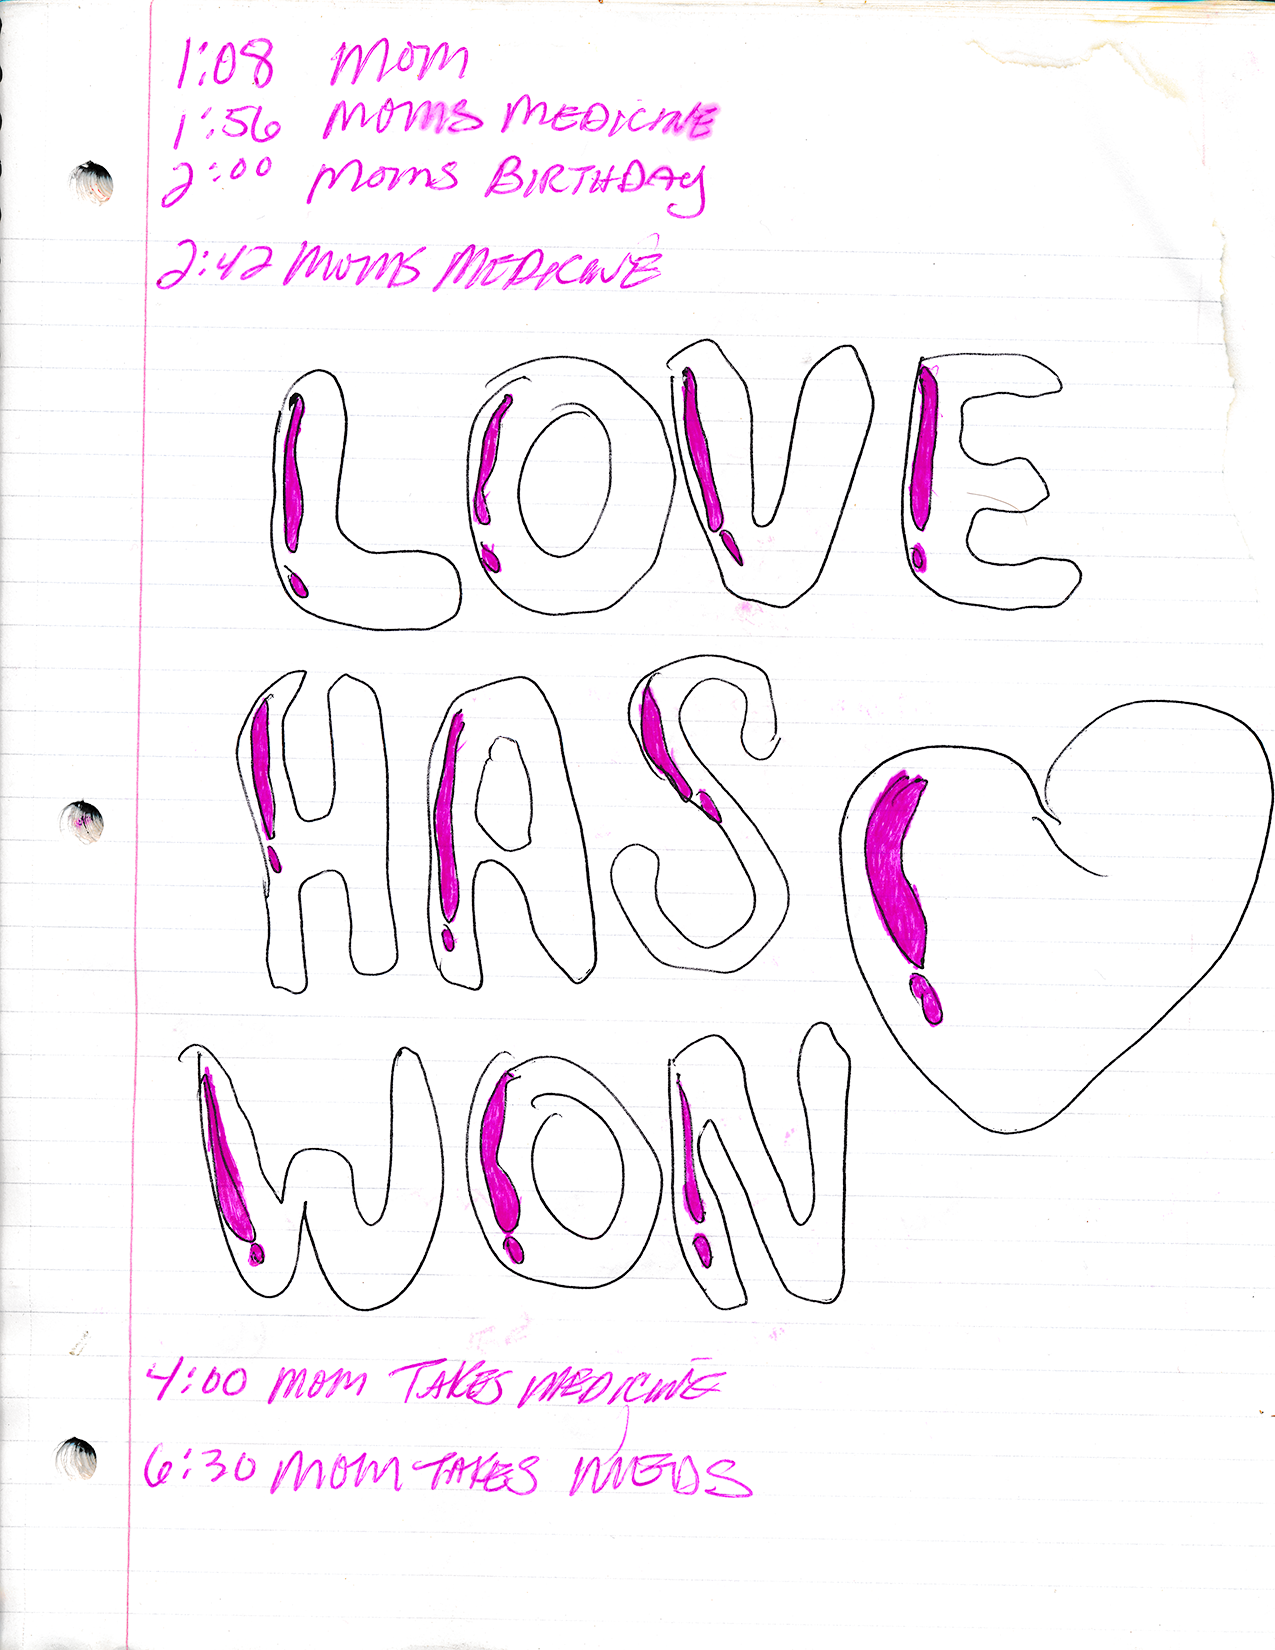 1:08 MOM
1:56 MOMS MEDICINE
2:00 MOMS BIRTHDAY
2:42 MOMS MEDICINE
LOVE
HAS
WON
4:00 MOM TAKES MEDICINE
6:30 MOM TAKES MEDS